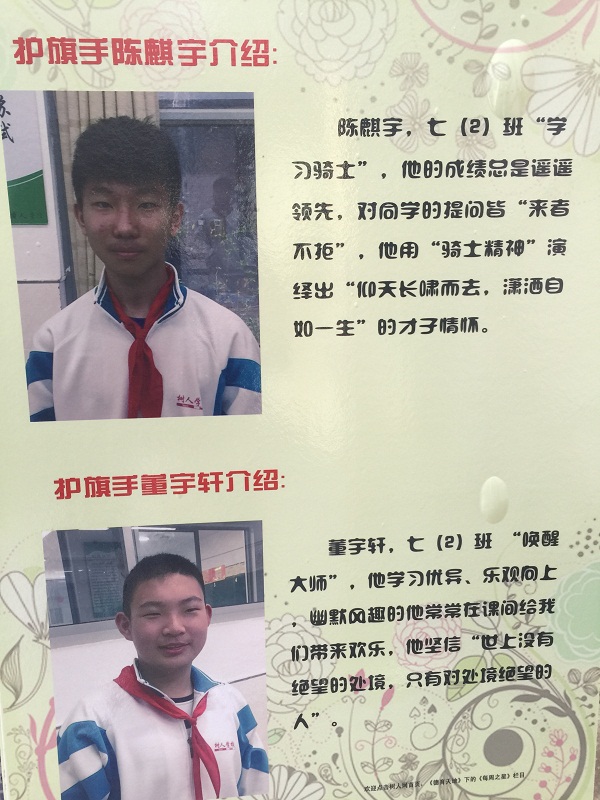 护旗手陈麒宇介绍:
陈麒宇，七（2）班“学
习骑士”，他的成绩总是遥遥
领先，对同学的提问皆“来者
不拒”，他用“骑士精神”演
绎出“仰天长啸而去，潇洒自
如一生”的才子情怀。
树人学
护旗手董宇轩介绍:
董宇轩，七（2）班 “唤醒
大师”，他学习优异、乐观向上
，幽默风趣的他常常在课间给我
们带来欢乐，他坚信“世上没有
绝望的处境，只有对处境绝望的
人”。
树人学校
欢迎点击树人网首页，《德育天地》下的《每周之星》栏目